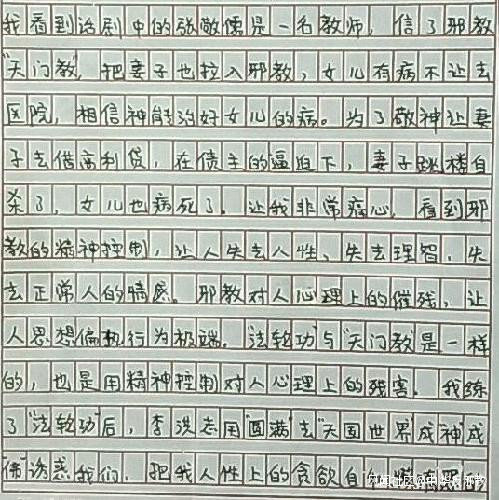 我看到话剧中的张敬儒是一名教师，信了邪教
"天门教"，把妻子也拉入邪教，女儿有病不让去
医院，相信神能治好女儿的病。为了敬神让妻
子去借高利贷，在债主的逼迫下，妻子跳楼自
杀了，女儿也病死了。让我非常痛心，看到邪
教的精神控制，让人失去人性、失去理智，失
去正常人的情感。邪教对人心理上的催残，让
人思想偏执行为极端。"法轮功"与"天门教"是一样
的，也是用精神控制对人心理上的残害。我练
了"法轮功"后，李洪志用"圆满"去"天国世界"成神成
"佛"诱惑我们，把我人性上的贪欲自